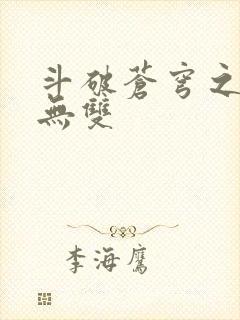 斗破蒼穹之
無雙
李海鷹